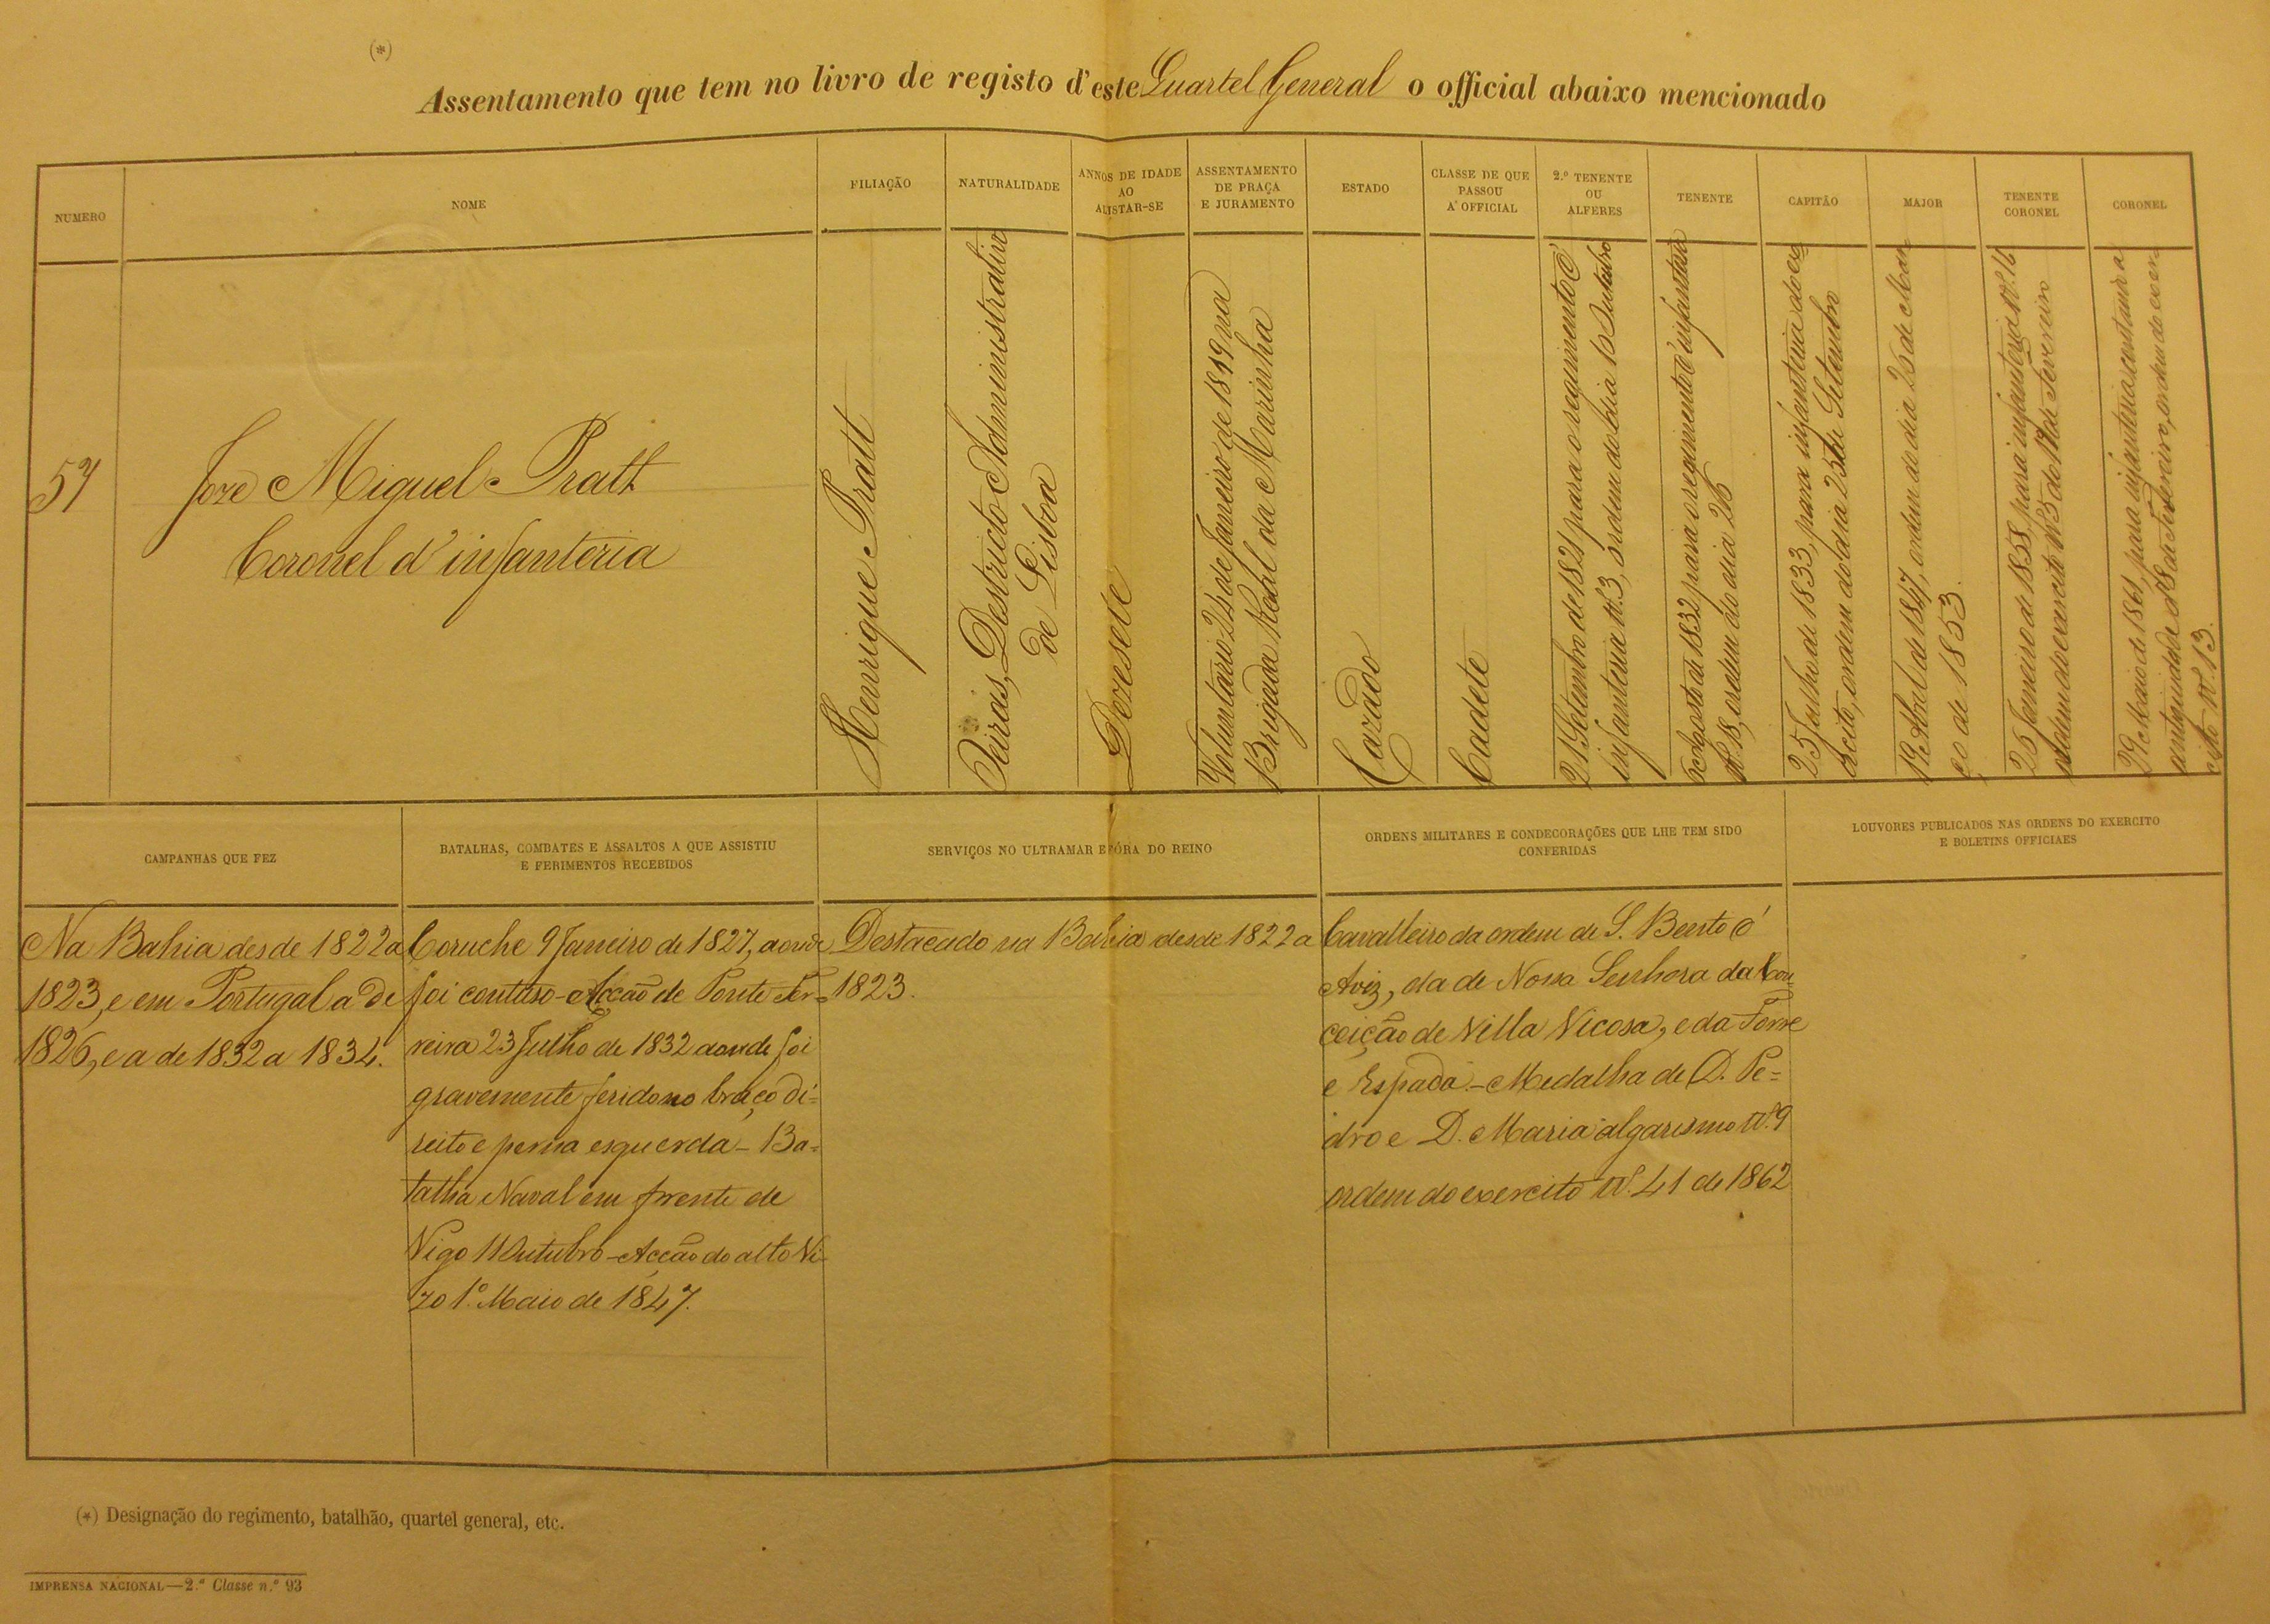 (*)
Assentamento que tem no livro de registo d'este Quartel General o official abaixo mencionado
NUMERO
NOME
FILIAÇÃO
NATURALIDADE
ANNOS DE IDADE
AO
ALISTAR-SE
ASSENTAMENTO
DE PRAÇA
E JURAMENTO
ESTADO
CLASSE DE QUE
PASSOU
A' OFFICIAL
2.º TENENTE
OU
ALFERES
TENENTE
CAPITÃO
MAJOR
TENENTE
CORONEL
CORONEL
57
Joze Miguel Pratt
Coronel d'infanteria
Henrique Pratt
Oeiras, Destricto Administrativo
de Lisboa
Dezesete
Voluntario 24 de Janeiro de 1819 na
Brigada Real da Marinha
Cazado
Cadete
21 Setembro de 1821 para o regimento d'
infanteria Nº 3, ordem do dia 10 Outubro
Agosto de 1832 para o regimento d'infanteria
Nº 18, ordem do dia 26
25 Julho de 1833, para infanteria do ex
ercito, ordem do dia 25 de Setembro
19 de Abril de 1847, ordem do dia 25 de Mar
ço de 1853.
26 Janeiro de 1858, para infanteria Nº 16
ordem do exercito Nº 5 de 19 de Fevereiro
29 de Maio de 1861, para infanteria com a
antiguidade d'18 de Fevereiro, ordem do exer
cito Nº 13.
CAMPANHAS QUE FEZ
BATALHAS, COMBATES E ASSALTOS A QUE ASSISTIU
E FERIMENTOS RECEBIDOS
SERVIÇOS NO ULTRAMAR E FÓRA DO REINO
ORDENS MILITARES E CONDECORAÇÕES QUE LHE TEM SIDO
CONFERIDAS
LOUVORES PUBLICADOS NAS ORDENS DO EXERCITO
E BOLETINS OFFICIAES
Na Bahia desde 1822 a
1823, e em Portugal a de
1826, e a de 1832 a 1834.
Coruche 9 Janeiro de 1827, aonde
foi contuso - Acção de Ponte Fer-
reira 23 Julho de 1832 aonde foi
gravemente ferido no braço di=
reito e perna esquerda - Ba=
talha Naval em frente de
Vigo 11 Outubro - Acção do alto Vi-
zo 1.º Maio de 1847.
Destacado na Bahia desde 1822 a
1823.
Cavalleiro da ordem de S. Bento d'
Aviz, da de Nossa Senhora da Con-
ceição de Villa Vicosa, e da Torre
e Espada. - Medalha de D. Pe=
dro e D. Maria algarismo Nº 9
ordem do exercito Nº 41 de 1862
(*) Designação do regimento, batalhão, quartel general, etc.
IMPRENSA NACIONAL—2.ª Classe n.º 93